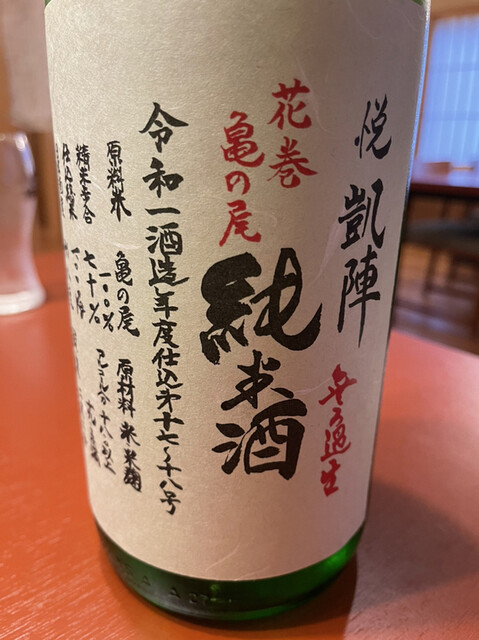 悦 凱陣
無ろ過生
花巻
亀の尾
純米酒
令和一酒造年度仕込第十七〜十八号
原料米 亀の尾 一〇〇%
原材料 米 米麹
精米歩合 七十%
アルコール分 十八以上